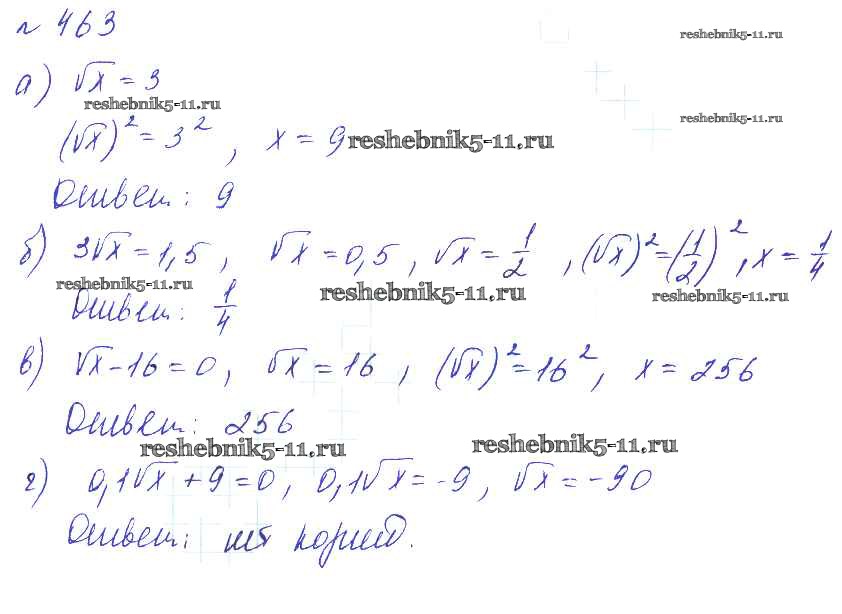 № 463
reshebnik5-11.ru
а) √x = 3
reshebnik5-11.ru
reshebnik5-11.ru
(√x)² = 3², x = 9
reshebnik5-11.ru
Ответ: 9
б) 3√x = 1,5, √x = 0,5, √x = 1/2, (√x)² = (1/2)², x = 1/4
reshebnik5-11.ru
reshebnik5-11.ru
reshebnik5-11.ru
Ответ: 1/4
в) √x - 16 = 0, √x = 16, (√x)² = 16², x = 256
Ответ: 256
reshebnik5-11.ru
reshebnik5-11.ru
г) 0,1√x + 9 = 0, 0,1√x = -9, √x = -90
Ответ: нет корней.